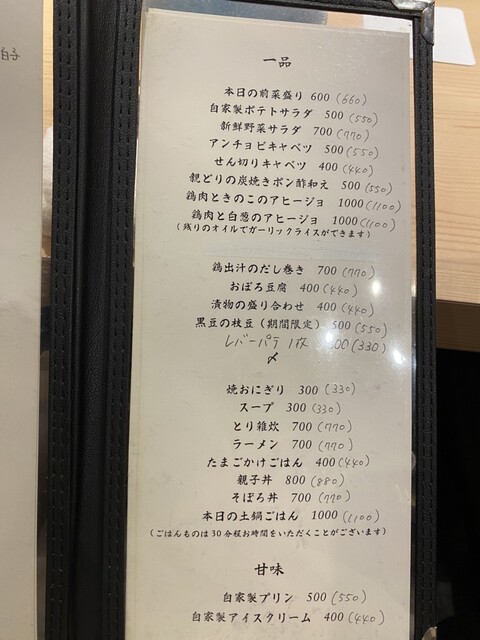 白子
一品
本日の前菜盛り 600 (660)
自家製ポテトサラダ 500 (550)
新鮮野菜サラダ 700 (770)
アンチョビキャベツ 500 (550)
せん切りキャベツ 400 (440)
親どりの炭焼きポン酢和え 500 (550)
鶏肉ときのこのアヒージョ 1000 (1100)
鶏肉と白葱のアヒージョ 1000 (1100)
(残りのオイルでガーリックライスができます)
鶏出汁のだし巻き 700 (770)
おぼろ豆腐 400 (440)
漬物の盛り合わせ 400 (440)
黒豆の枝豆 (期間限定) 500 (550)
レバーパテ 1枚 300 (330)
〆
焼おにぎり 300 (330)
スープ 300 (330)
とり雑炊 700 (770)
ラーメン 700 (770)
たまごかけごはん 400 (440)
親子丼 800 (880)
そぼろ丼 700 (770)
本日の土鍋ごはん 1000 (1100)
(ごはんものは30分程お時間をいただくことがございます)
甘味
自家製プリン 500 (550)
自家製アイスクリーム 400 (440)